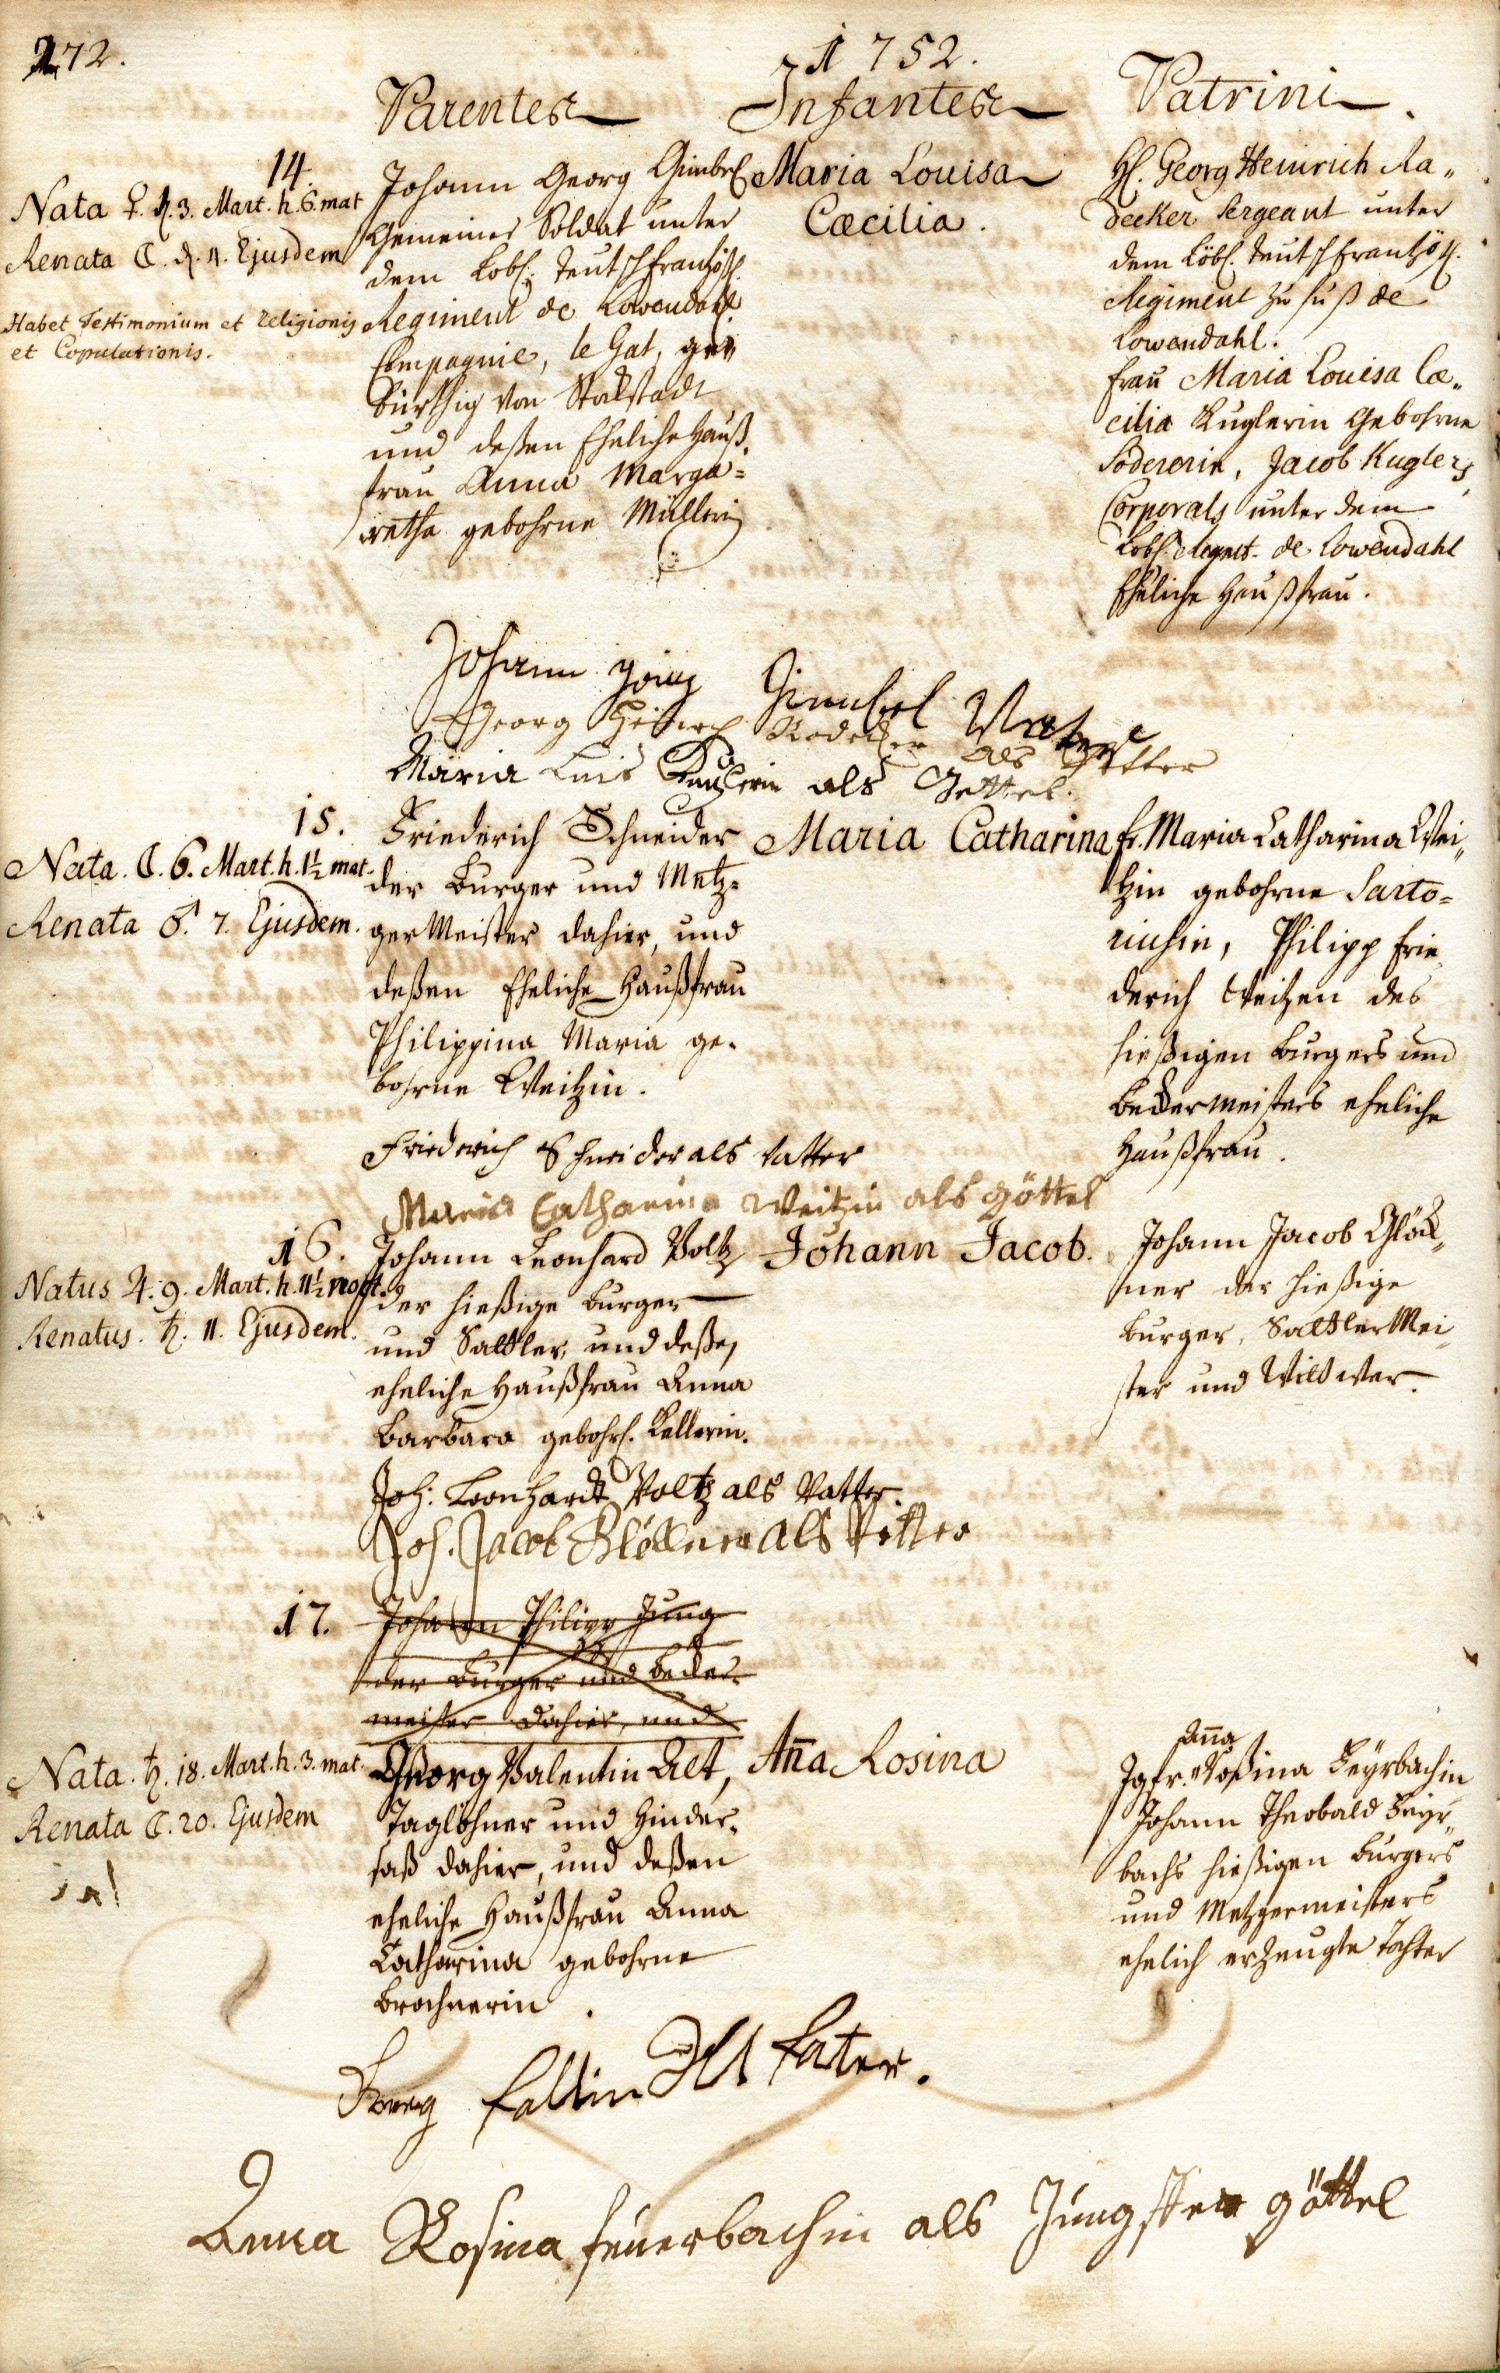 272.
1752.
Parentes
Infantes
Patrini.
14.
Nata ♀. d. 3. Mart. h. 6. mat
Renata ☾. d. 11. Ejusdem
Habet Testimonium et Religionis
et Copulationis.
Johann Georg Gimbel
Gemeiner Soldat unter
dem Löbl. Teutschfrantzös.
Regiment de Lowendahl
Compagnie, le Gat, ge„
bürthig von Stockstadt
und deßen Eheliche Hauß„
frau Anna Marga=
retha gebohrne Müllerin
Maria Louisa
Cæcilia.
H. Georg Heinrich Ra„
decker Sergeant unter
dem Löbl. Teutschfrantzös.
Regiment zu fuß de
Lowendahl.
Frau Maria Louisa Cæ„
cilia Kuglerin Gebohrne
Södererin, Jacob Kuglers,
Corporals unter dem
Löbl. Regmt. de Lowendahl
Eheliche Haußfrau.
Johann Gimbel Vatter
Georg Heinrich Radecker als Pfetter
Maria Luis Kuglerin als Gettel.
15.
Nata. ☾. 6. Mart. h. 1½ mat.
Renata ♂. 7. Ejusdem.
Friederich Schneider
der Burger und Metz=
germeister dahier, und
deßen Eheliche Haußfrau
Philippina Maria ge„
bohrne Weitzin.
Maria Catharina
Fr. Maria Catharina Wei„
tzin gebohrne Sarto=
riusin, Philipp Frie„
derich Weitzen des
hießigen Burgers und
Beckermeisters eheliche
Haußfrau.
Friederich Schneider als Vatter
Maria Catharina Weitzin als göttel
16.
Natus ♃. 9. Mart. h. 11½ noct.
Renatus. ♄. 11. Ejusdem.
Johann Leonhard Voltz
der hießige Burger
und Sattler, und deßen
eheliche Haußfrau Anna
Barbara gebohr. Kellerin.
Johann Jacob.
Johann Jacob Glöck„
ner der hießige
Burger, Sattlermei„
ster und Wittwer.
Joh: Leonhardt Voltz als Vatter.
Joh. Jacob Glöckner als Pfetter
17.
Johann Philipp Jung
der Burger und Becker
meister dahier, und
Nata. ♄. 18. Mart. h. 3. mat.
Renata ☾. 20. Ejusdem
ja!
Georg Valentin Alt,
Taglöhner und Hinder„
saß dahier, und deßen
eheliche Haußfrau Anna
Catharina gebohrne
Brochnerin.
Aña Rosina
Aña
Jgfr. Roßina Feyrbachin
Johann Theobald Feyr„
bachs hießigen Burgers
und Metzgermeisters
ehelich erzeugte Tochter
Georg faltin Alt fater.
Anna Rosina feuerbachin als Jungster göttel